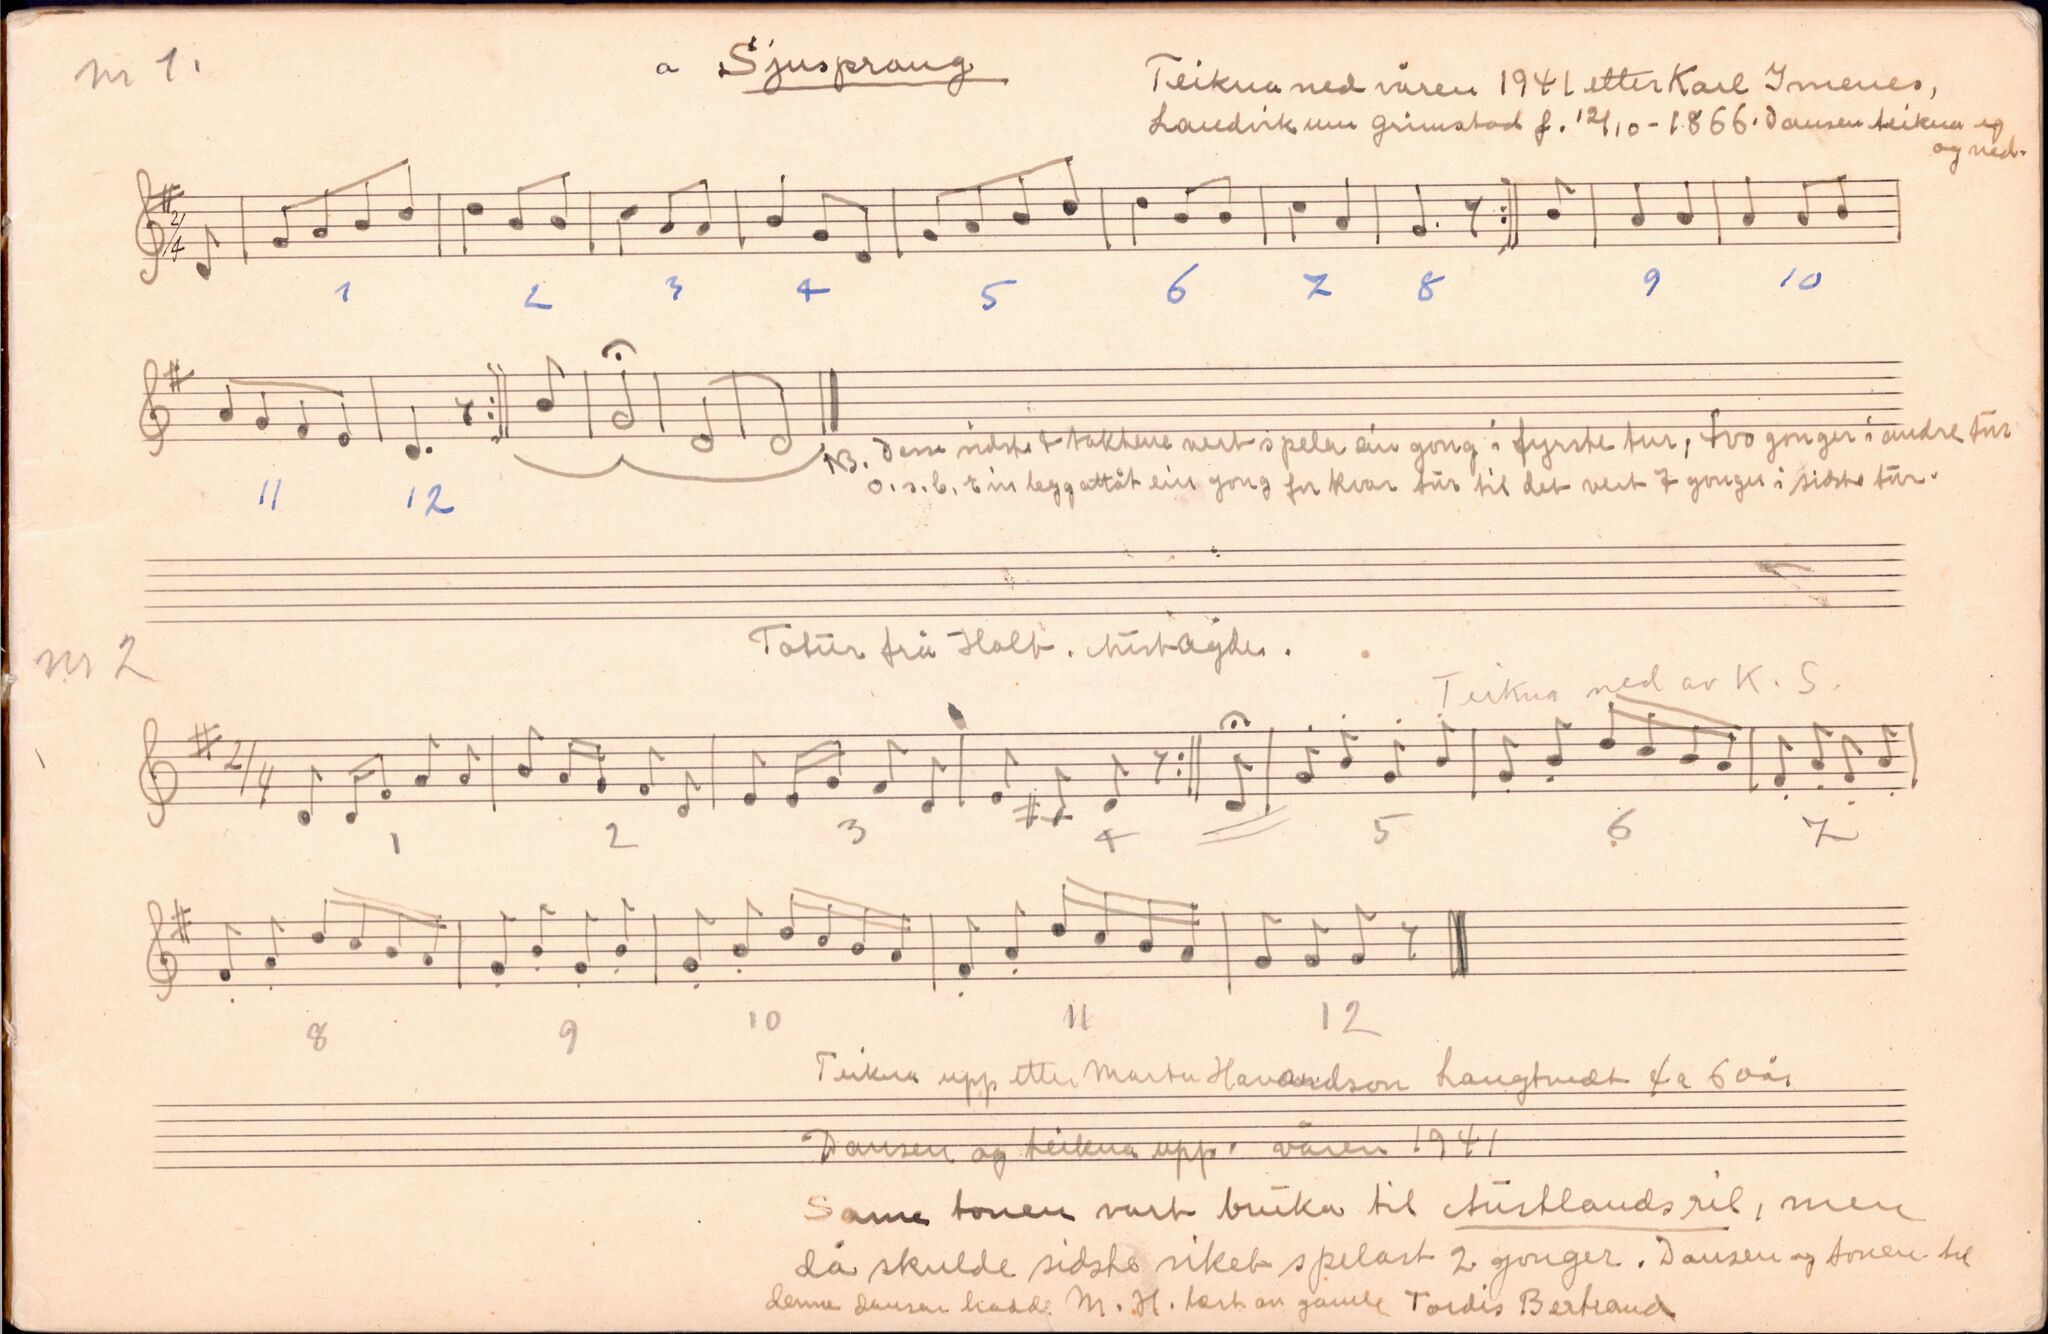 nr 1.
a Sjusprang
Teikna ned våren 1941 etter Karl Imenes,
Landvik um Grimstad f. 12/10-1866. Dansen teikna eg
og ned.
2/4
1 2 3 4 5 6 7 8 9 10
NB. Desse sidste takterne vert spela ein gong i fyrste tur, tvo gonger i andre tur
11 12
o.s.b. ein legg attåt ein gong for kvar tur til det vert 7 gonger i sidste tur.
nr 2
Totur frå Holt. Aust Agder.
Teikna ned av K. S.
2/4
1 2 3 4 5 6 7
8 9 10 11 12
Teikna upp etter Marta Havardson Langtvedt ca 60 år
Dansen og teikna upp. våren 1941
Same tonen vart bruka til Austlandsril, men
då skulde sidste riket spelast 2 gonger. Dansen og tonen til
denne dansen hadde M. H. lært av gamle Tordis Bertrand